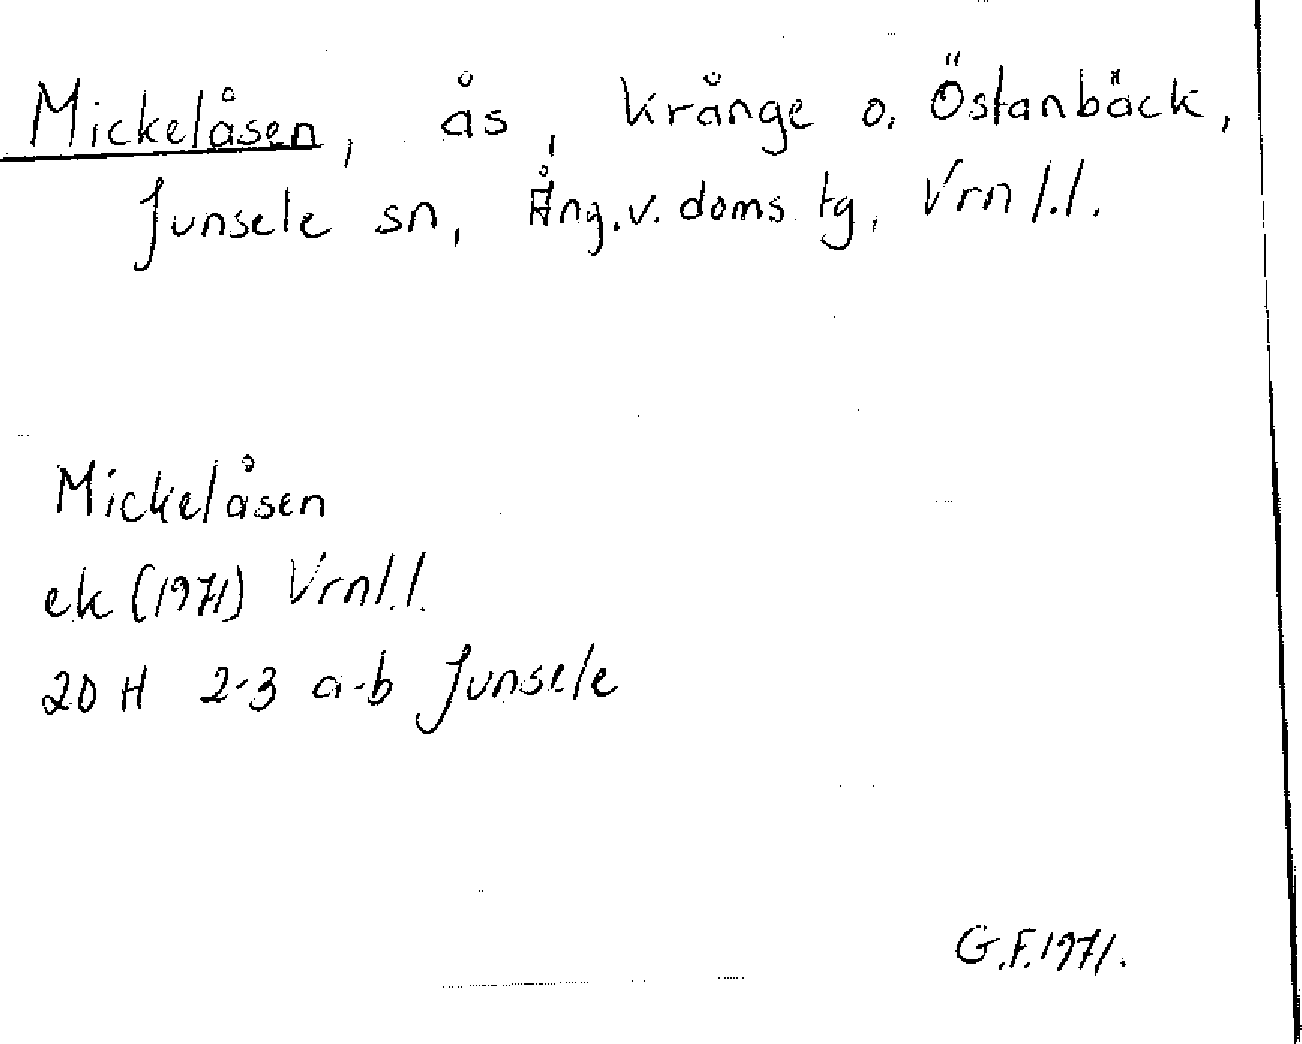 Mickelåsen, ås, Krånge o. Östanbäck,
Junsele sn, Ång.v. doms. tg, Vrn l.l.
Mickelåsen
ek (1971) Vrn l.l.
20 H 2-3 a-b Junsele
G.F. 1971.